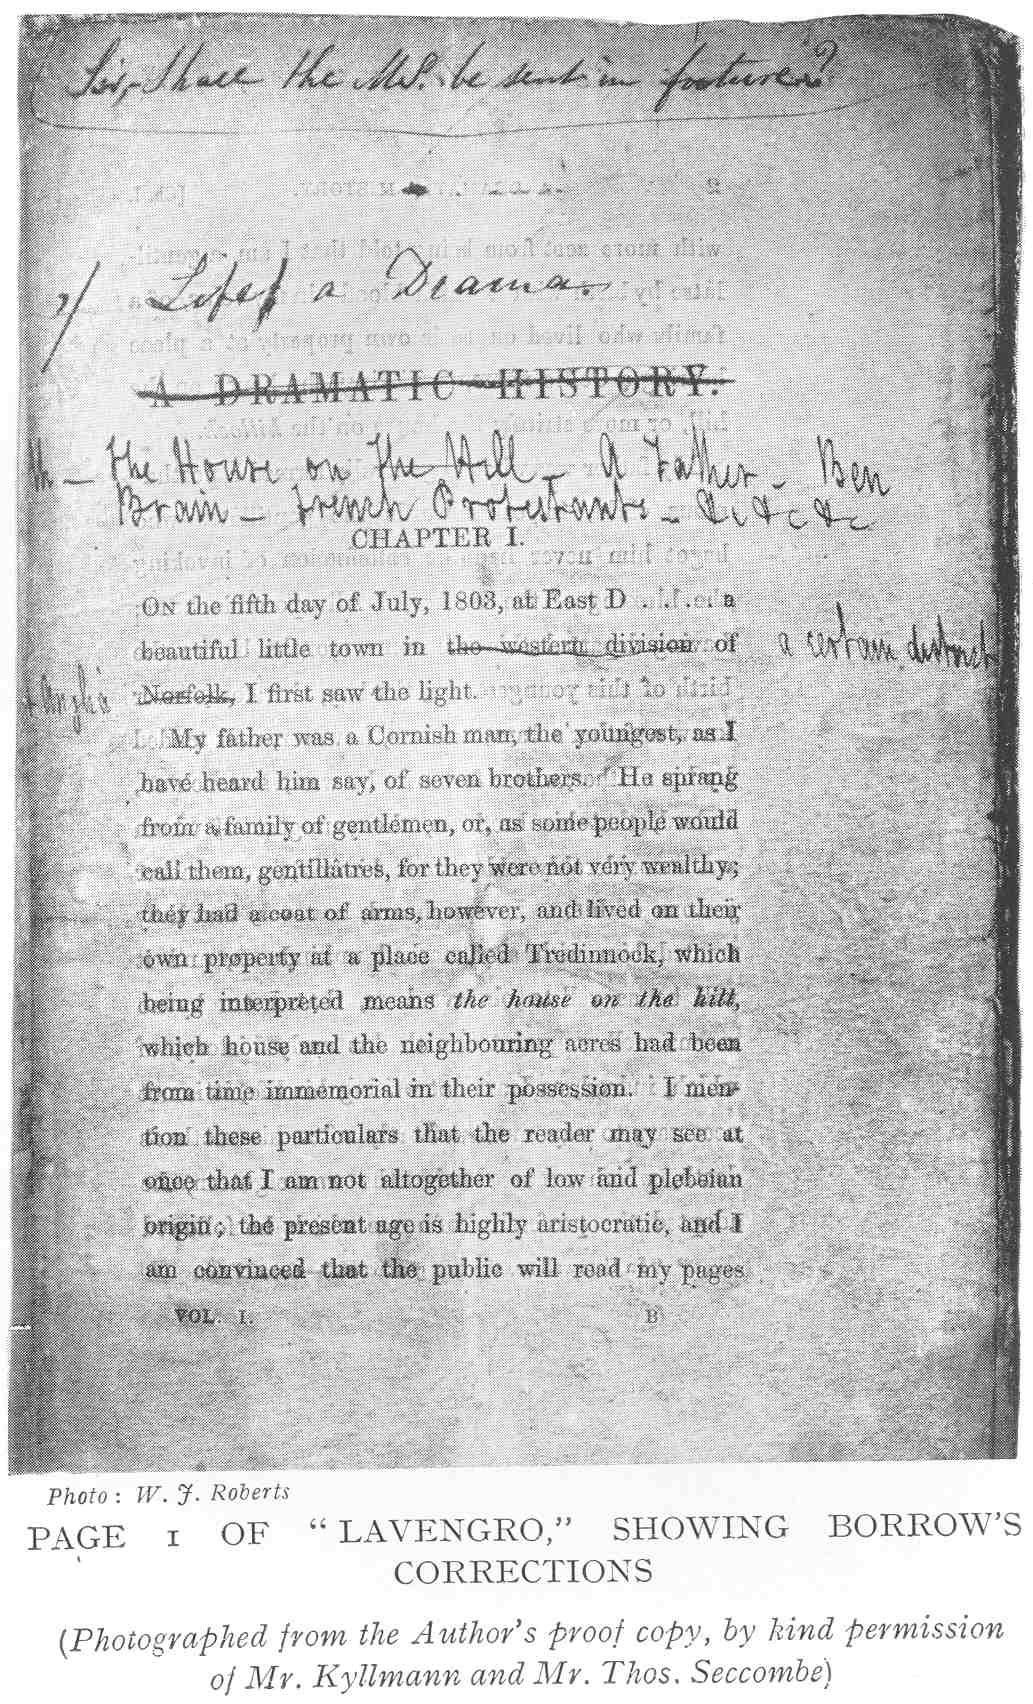 Sir, Shall the MS. be sent in footure?
Life, a Drama.
A DRAMATIC HISTORY.
The House on The Hill – A Father – Ben
Brain – French Protestants – &c &c &c
CHAPTER I.
ON the fifth day of July, 1803, at East D . . . . a
beautiful little town in the western division of
a certain district
Norfolk, I first saw the light.
My father was a Cornish man, the youngest, as I
have heard him say, of seven brothers. He sprang
from a family of gentlemen, or, as some people would
call them, gentillâtres, for they were not very wealthy;
they had a coat of arms, however, and lived on their
own property at a place called Tredinnock, which
being interpreted means the house on the hill,
which house and the neighbouring acres had been
from time immemorial in their possession. I men-
tion these particulars that the reader may see at
once that I am not altogether of low and plebeian
origin; the present age is highly aristocratic, and I
am convinced that the public will read my pages
VOL. I. B
Photo: W. J. Roberts
PAGE 1 OF “LAVENGRO,” SHOWING BORROW’S
CORRECTIONS
(Photographed from the Author’s proof copy, by kind permission
of Mr. Kyllmann and Mr. Thos. Seccombe)